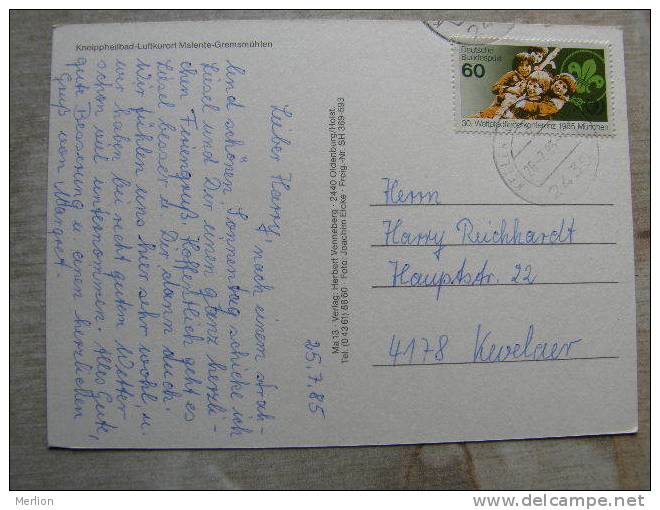 Kneippheilbad-Luftkurort Malente-Gremsmühlen
25.7.85
Lieber Harry, nach einem strah-
lend schönen Sonnentag schicke ich
Liesel und Dir einen ganz herzli-
chen Feriengruß. Hoffentlich geht es
Liesel besser u. Dir dann auch.
Wir fühlen uns hier sehr wohl, u.
wir haben bei recht gutem Wetter
schon viel unternommen. Alles Gute,
gute Besserung u. einen herzlichen
Gruß von Margret.
Ma 13 Verlag: Herbert Venneberg · 2440 Oldenburg/Holst.
Tel. (0 43 61) 88 60 Foto: Joachim Eicke · Freig.-Nr. SH 369-693
Deutsche
Bundespost
60
30. Weltpfadfinderkonferenz 1985 München
Herrn
Harry Reichhardt
Hauptstr. 22
4178 Kevelaer
Merlion
delcampe.net